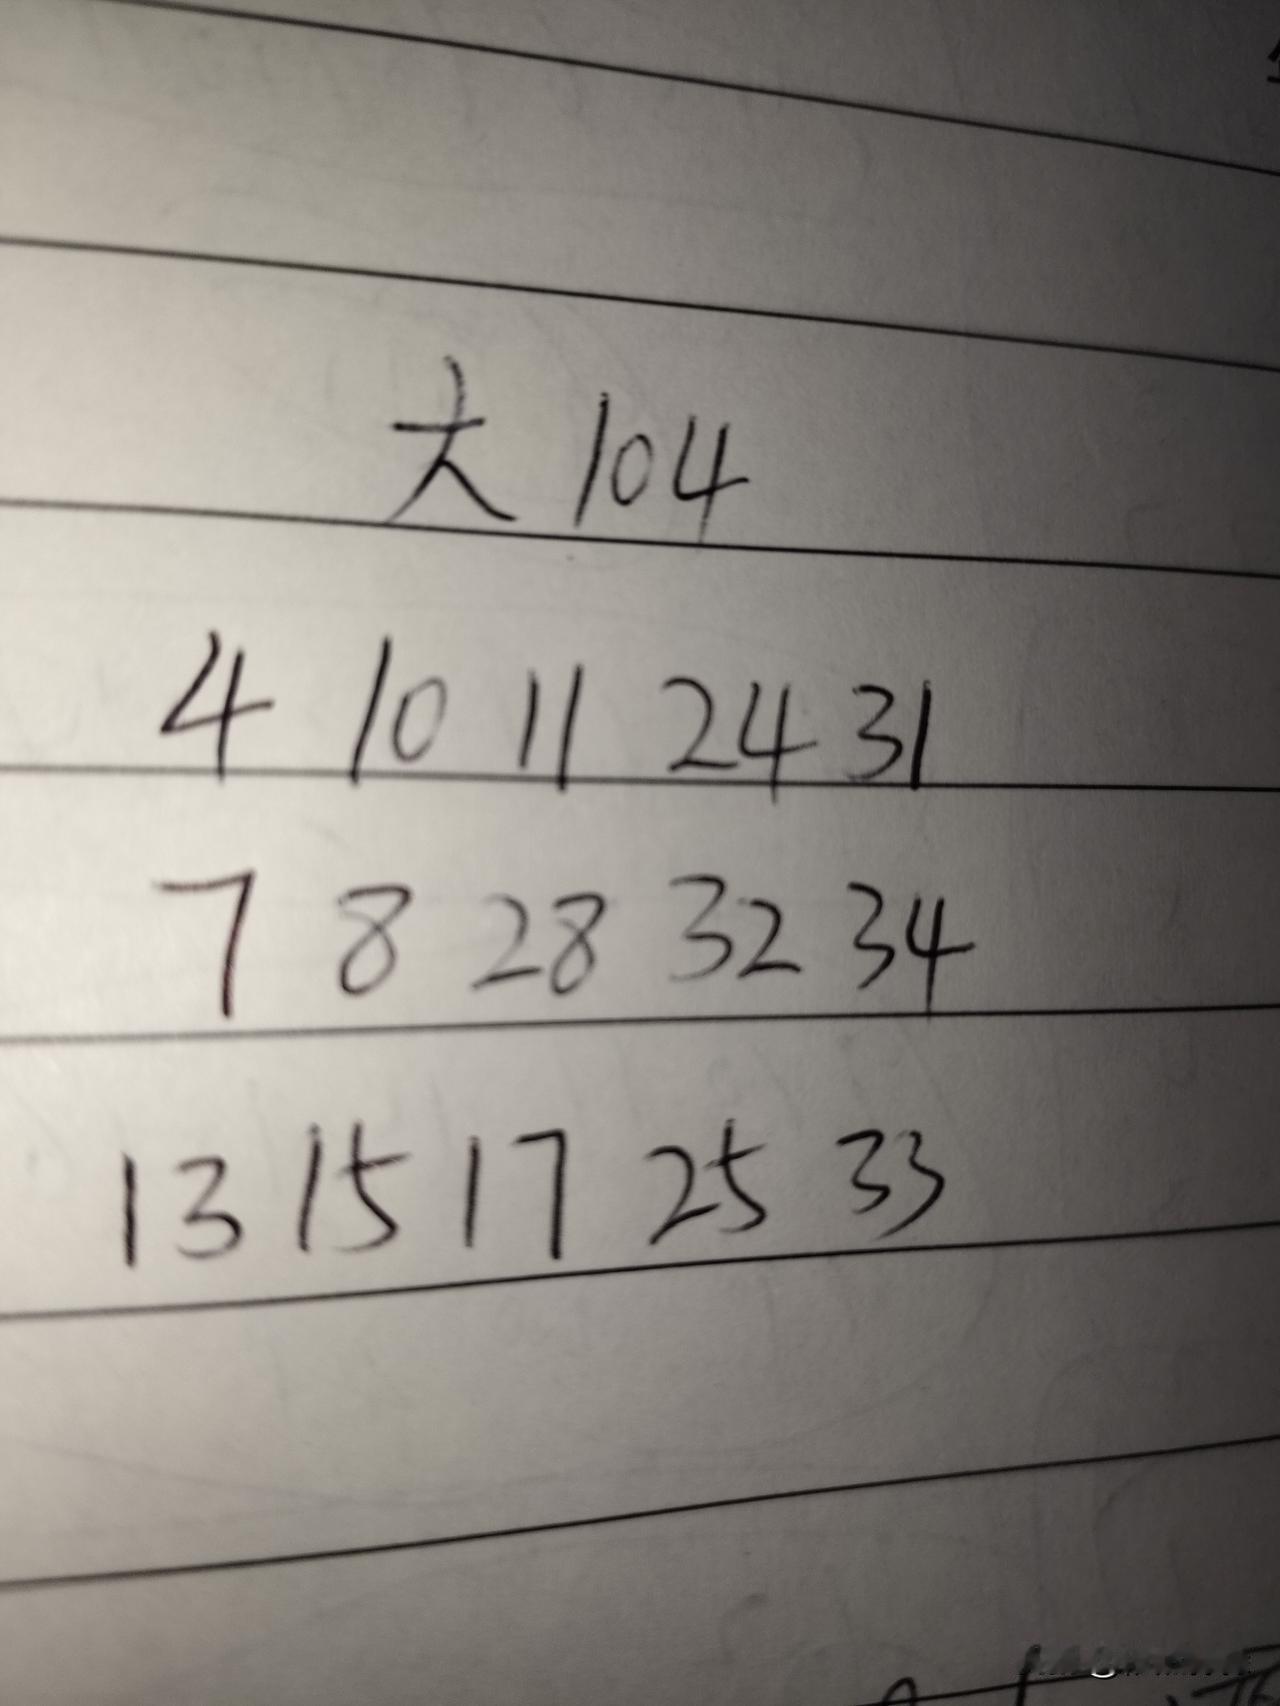 大 104
4 10 11 24 31
7 8 28 32 34
13 15 17 25 33